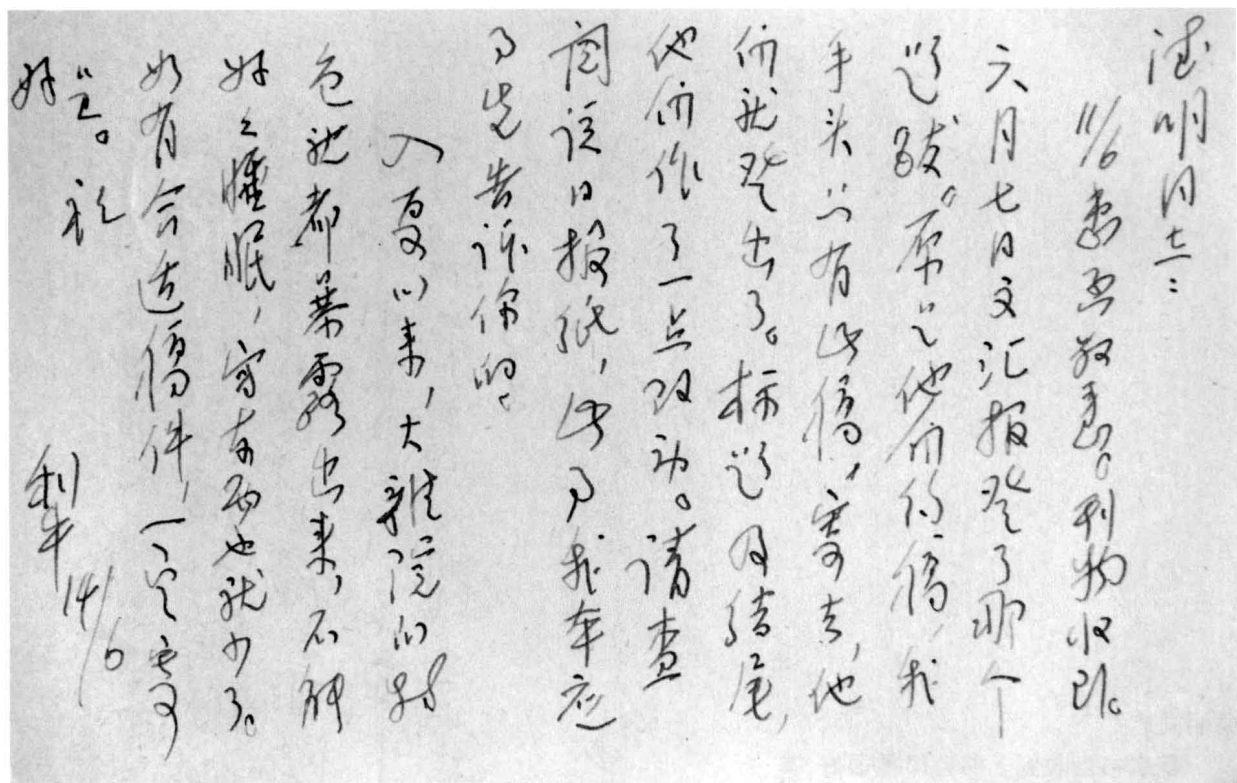 德明同志：
11/6惠函敬悉。刊物收到。
六月七日文汇报登了那个
题跋。原是他们约稿，我
手头只有此稿，寄去，他
们就登出了。标题及结尾，
他们作了一点改动。请查
阅该日报纸，此事我本应
事先告诉你的。
入夏以来，大杂院的特
色就都暴露出来，不能
好好睡眠，写东西也就少了。
如有合适稿件，一定寄
上。祝
好
犁 14/6